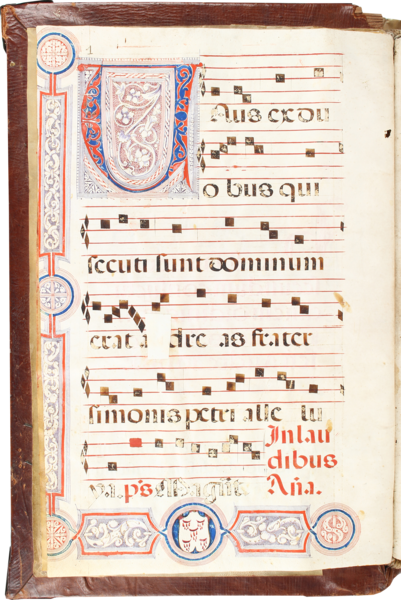 Unus ex du
o bus qui
secuti sunt dominum
erat a dre as frater
simonis petri alle lu
In lau
dibus
ya. p̄s. Aña.